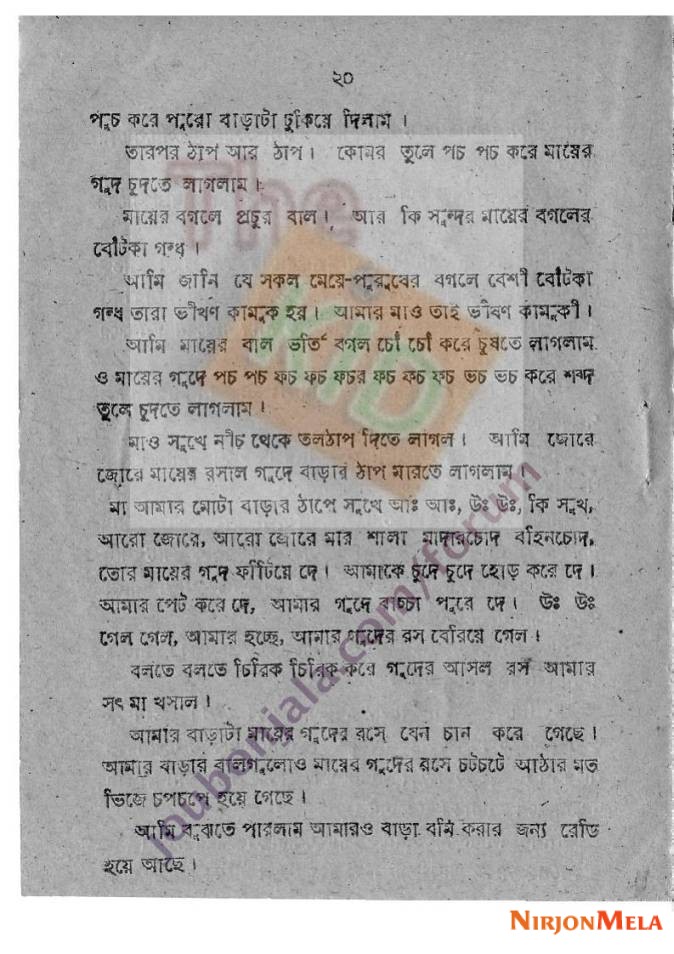 ২০
পুচ করে পুরো বাড়াটা ঢুকিয়ে দিলাম ।
তারপর ঠাপ আর ঠাপ । কোমর তুলে পচ পচ করে মায়ের
গুদ চুদতে লাগলাম ।
মায়ের বগলে প্রচুর বাল । আর কি সুন্দর মায়ের বগলের
বোঁটকা গন্ধ ।
আমি জানি যে সকল মেয়ে-পুরুষের বগলে বেশী বোঁটকা
গন্ধ তারা ভীষণ কামুক হয় । আমার মাও তাই ভীষণ কামুকী ।
আমি মায়ের বাল ভর্তি বগল চোঁ চোঁ করে চুষতে লাগলাম
ও মায়ের গুদে পচ পচ ফচ ফচ ফচর ফচ কচ ফচ ভচ ভচ করে শব্দ
তুলে চুদতে লাগলাম ।
মাও সুখে নীচ থেকে তলঠাপ দিতে লাগল । আমি জোরে
জোরে মায়ের রসাল গুদে বাড়ার ঠাপ মারতে লাগলাম ।
মা আমার মোটা বাড়ার ঠাপে সুখে আঃ আঃ, উঃ উঃ, কি সুখ,
আরো জোরে, আরো জোরে মার শালা মাদারচোদ বহিনচোদ,
তোর মায়ের গুদ ফাটিয়ে দে । আমাকে চুদে চুদে হোড় করে দে ।
আমার পেট করে দে, আমার গুদে বাচ্চা পুরে দে । উঃ উঃ
গেল গেল, আমার হচ্ছে, আমার গুদের রস বেরিয়ে গেল ।
বলতে বলতে চিরিক চিরিক করে গুদের আসল রস আমার
সৎ মা খসাল ।
আমার বাড়াটা মায়ের গুদের রসে যেন চান করে গেছে ।
আমার বাড়ার বালগুলোও মায়ের গুদের রসে চটচটে আঠার মত
ভিজে চপচপে হয়ে গেছে ।
আমি বুঝতে পারলাম আমারও বাড়া বমি করার জন্য রেডি
হয়ে আছে ।
The
KID
joubonjala.com/forum
NIRJONMELA